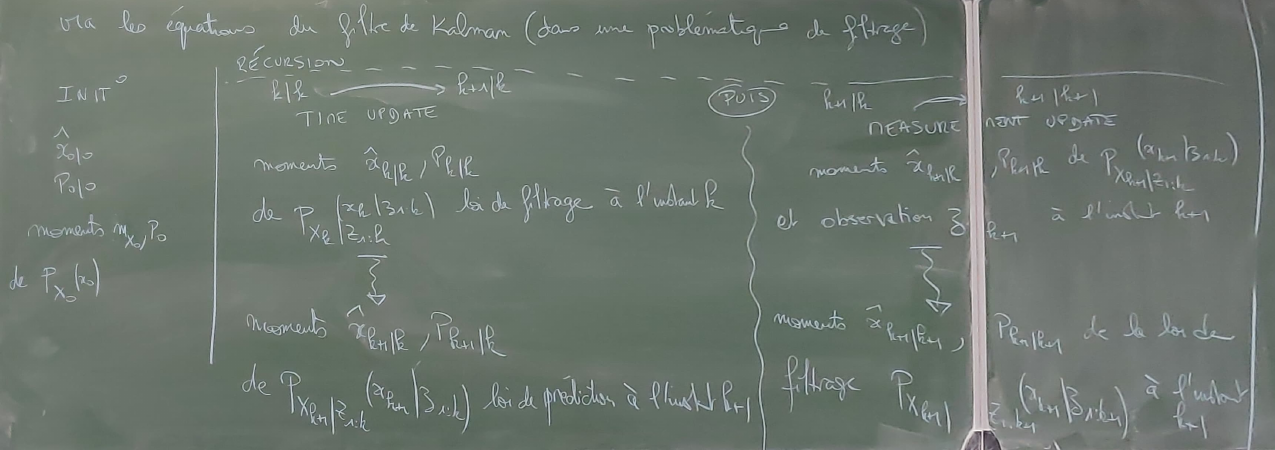 via les équations du filtre de Kalman (dans une problématique de filtrage)
INIT°
x̂0|0
P0|0
moments m_X0, P0
de p_X0(x0)
RÉCURSION
k|k → k+1|k
TIME UPDATE
moments x̂k|k, Pk|k
de p_Xk|Z1:k(xk|z1:k) loi de filtrage à l'instant k
moments x̂k+1|k, Pk+1|k
de p_Xk+1|Z1:k(xk+1|z1:k) loi de prédiction à l'instant k+1
PUIS
k+1|k → k+1|k+1
MEASUREMENT UPDATE
moments x̂k+1|k, Pk+1|k de p_Xk+1|Z1:k(xk+1|z1:k)
et observation zk+1 à l'instant k+1
moments x̂k+1|k+1, Pk+1|k+1 de la loi de
filtrage p_Xk+1|Z1:k+1(xk+1|z1:k+1) à l'instant
k+1